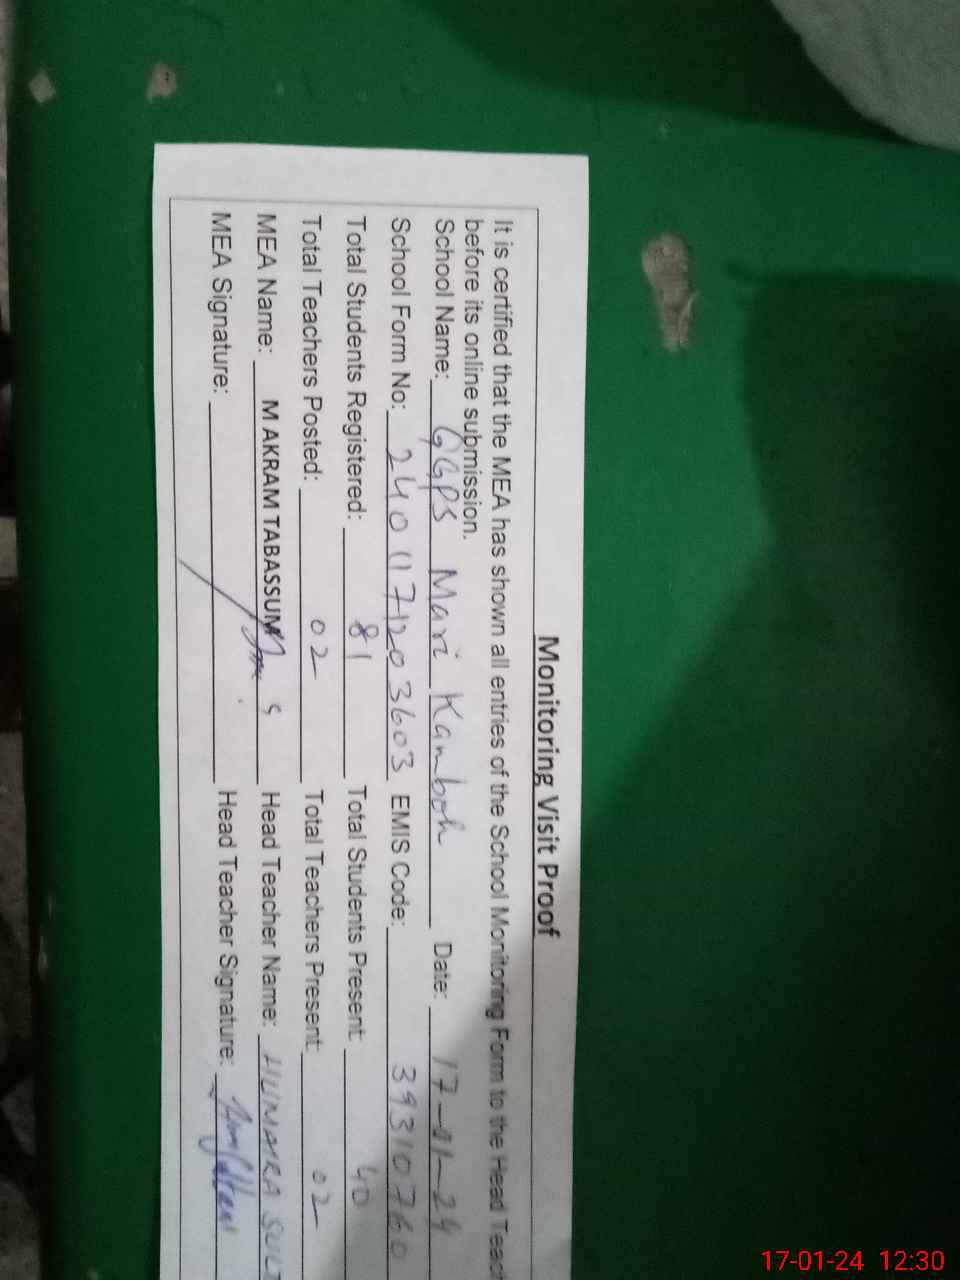 Monitoring Visit Proof
It is certified that the MEA has shown all entries of the School Monitoring Form to the Head Teac
before its online submission.
School Name: GGPS Mari Kamboh Date: 17-01-24
School Form No: 2401171203603 EMIS Code: 39310760
Total Students Registered: 81 Total Students Present: 40
Total Teachers Posted: 02 Total Teachers Present: 02
MEA Name: M AKRAM TABASSUM Head Teacher Name: HUMAIRA SULT
MEA Signature: Head Teacher Signature:
17-01-24 12:30